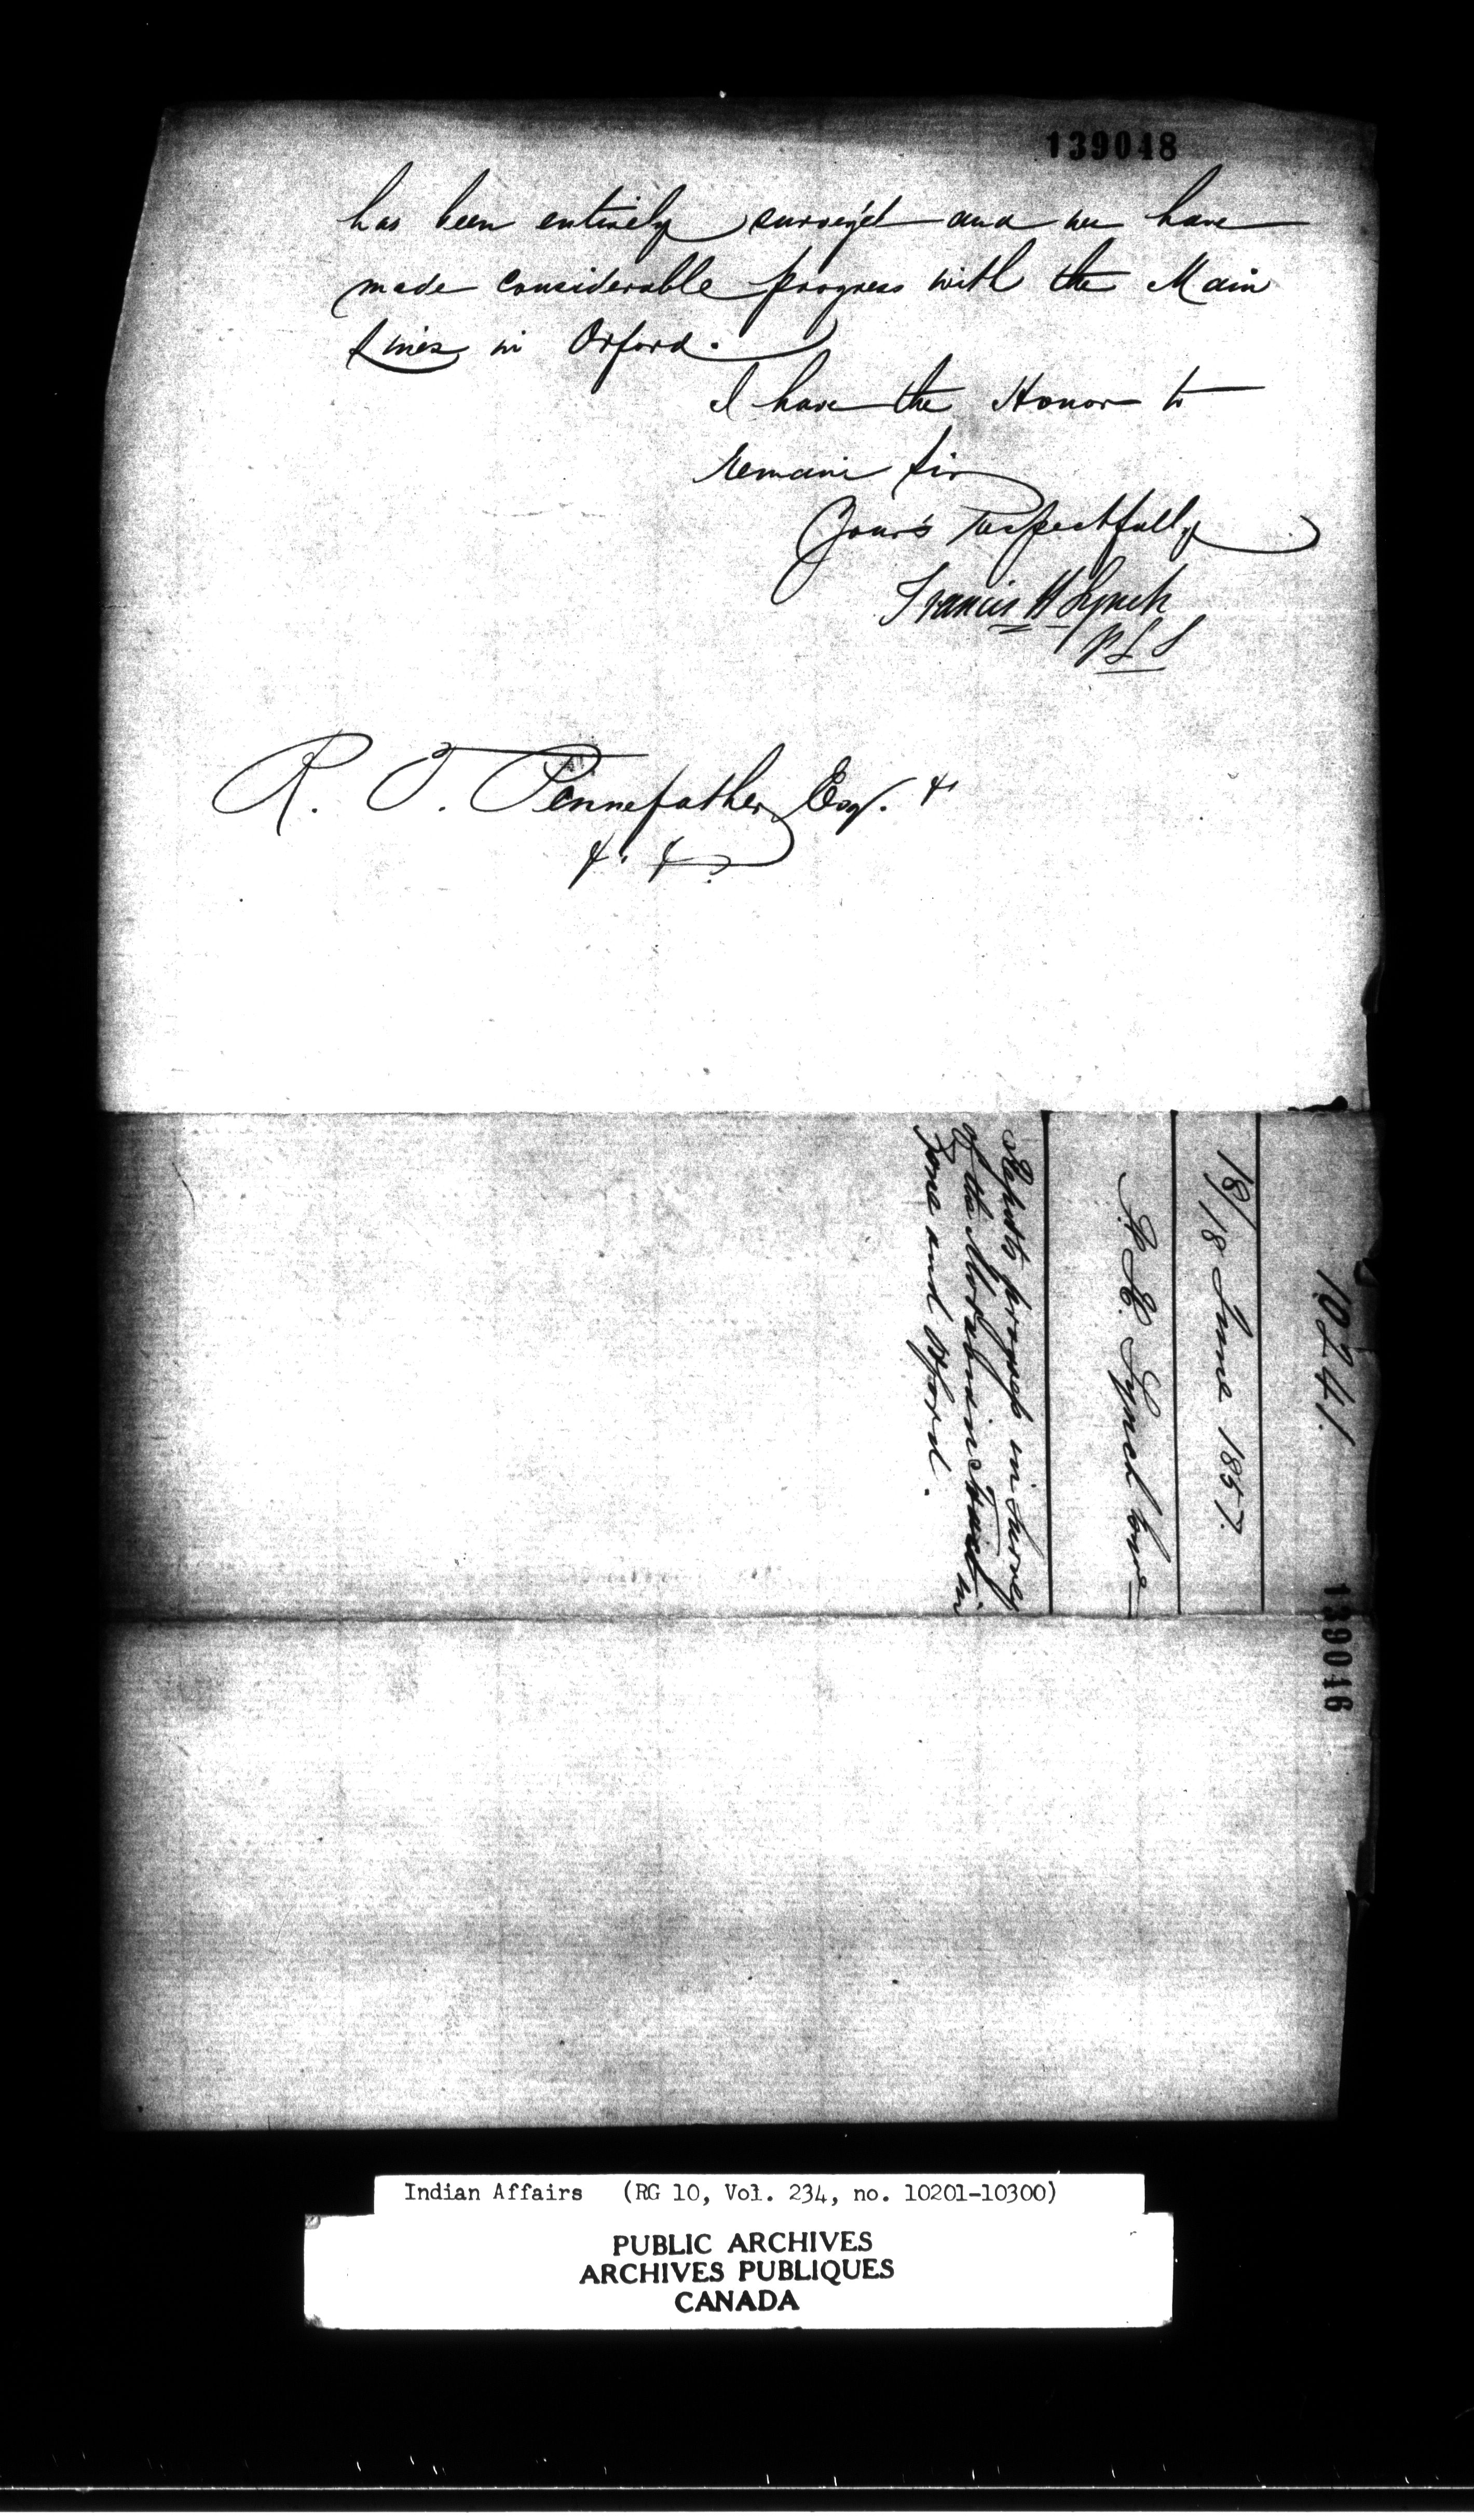 139048
has been entirely survey'd and we have
made considerable progress with the Main
Lines in Orford.
I have the Honor to
remain Sir
Your's respectfully
Francis H Lynch
PLS
R. T. Pennefather Esq. &
&. &.
10241.
18/18 June 1857.
F. H. Lynch
Reports progress in Survey
of the Moravian Tract in
Zone and Orford.
139046
Indian Affairs (RG 10, Vol. 234, no. 10201-10300)
PUBLIC ARCHIVES
ARCHIVES PUBLIQUES
CANADA